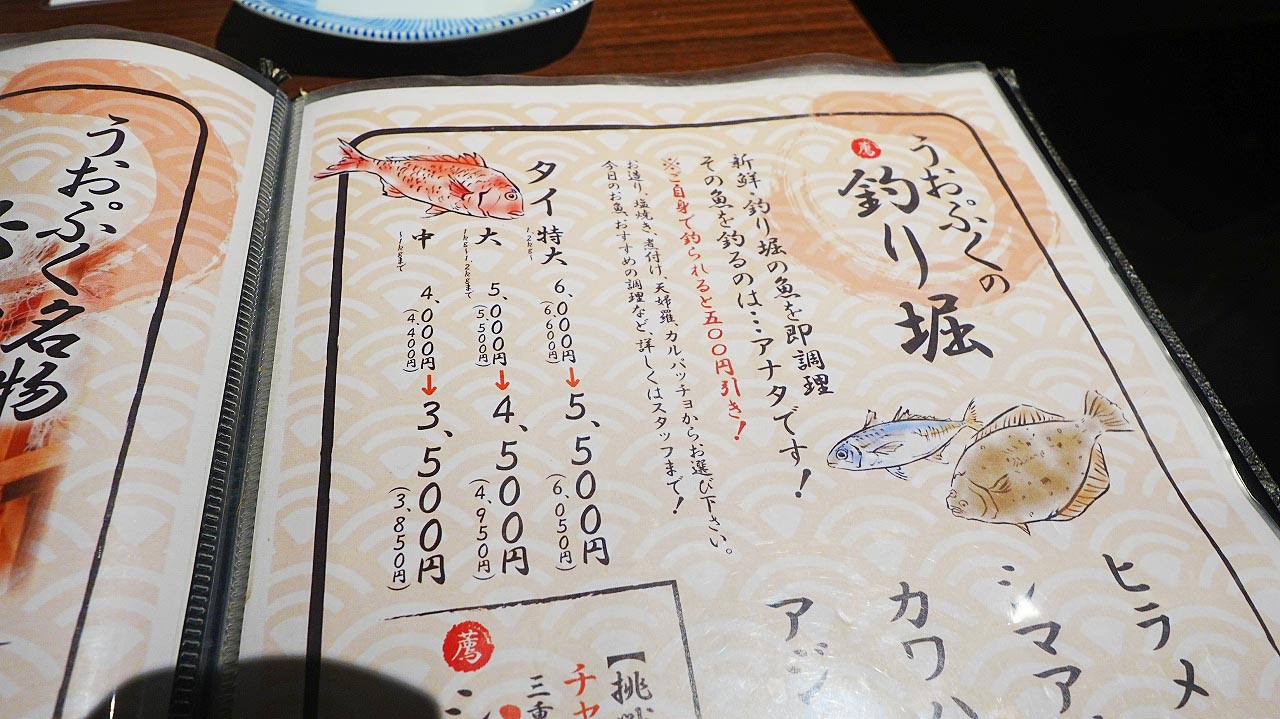 うおぷくの
薦
釣り堀
新鮮・釣り堀の魚を即調理
その魚を釣るのは…アナタです!
※ご自身で釣られると五〇〇円引き!
お造り、塩焼き、煮付け、天婦羅、カルパッチョからお選び下さい。
今日のお魚、おすすめの調理など、詳しくはスタッフまで!
タイ
特大
6,000円→5,500円
(6,600円)
(6,050円)
大
5,000円→4,500円
(5,500円)
(4,950円)
中
〜1kgまで
4,000円→3,500円
(4,400円)
(3,850円)
ヒラメ
シマア
カワハ
アジ
【挑
チャ
三重
薦
うおぷく名物